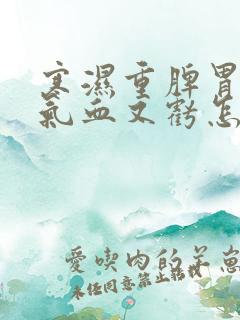 寒濕重脾胃
氣血又虧怎
愛喫肉的羊崽
未经同意禁止转载